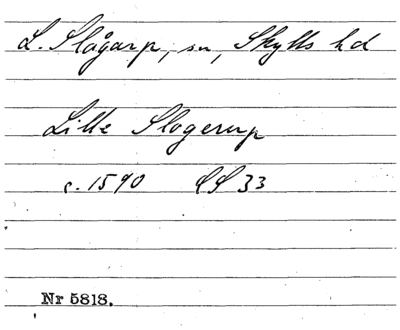 L. Slågarp, sn, Skytts hd
Lille Slogerup
c. 1590 LS 33
Nr 5818.